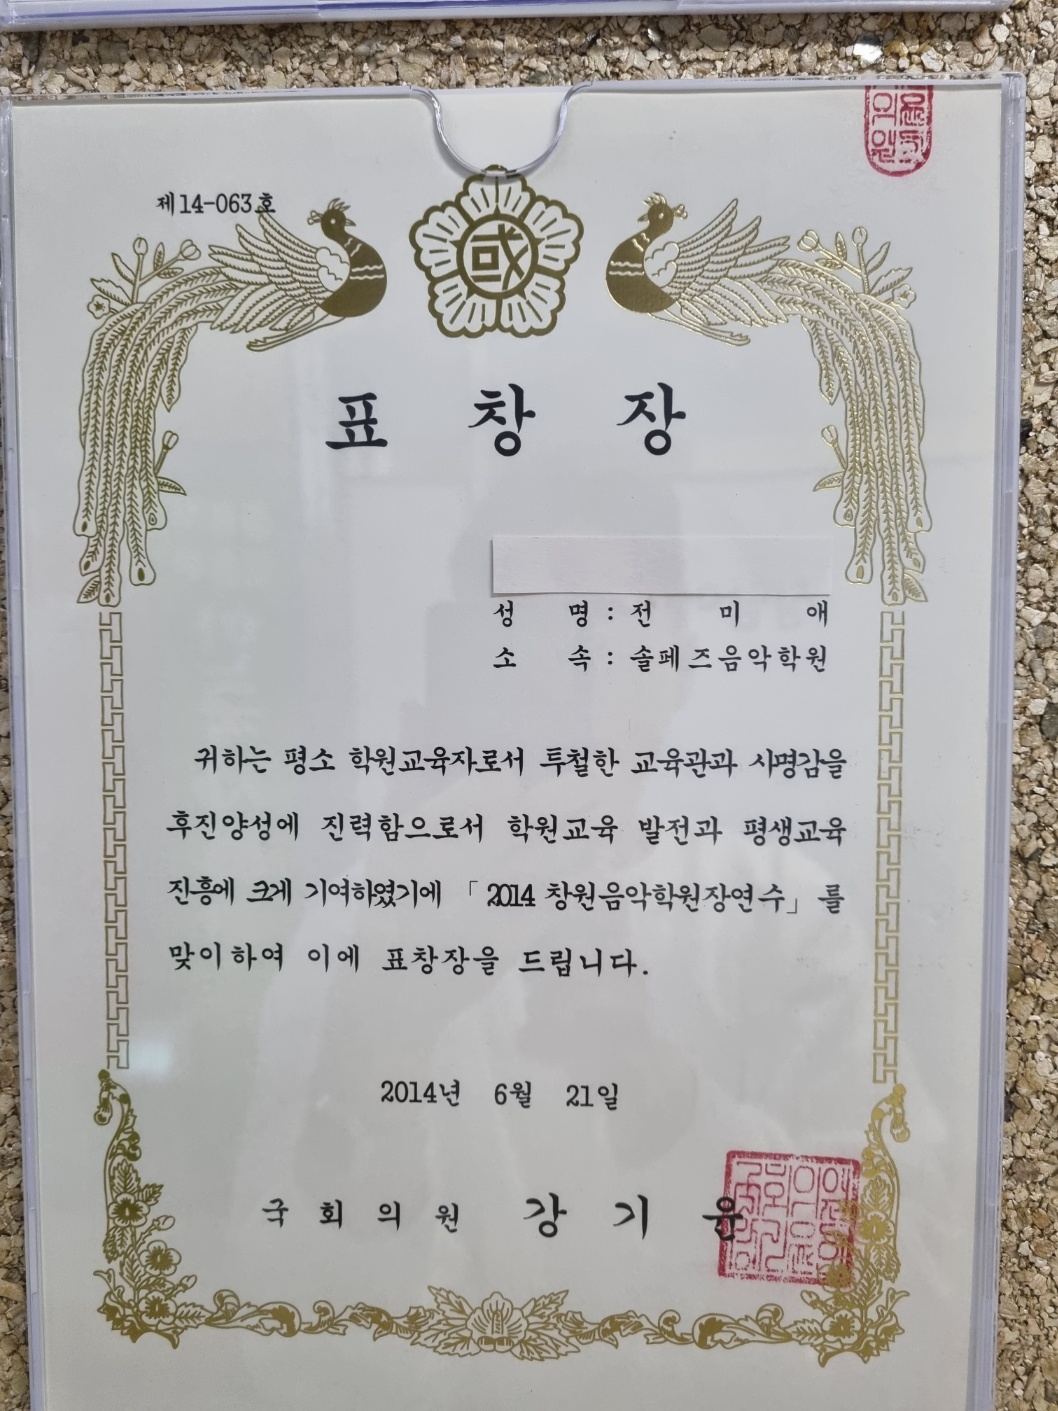 제 14-063 호
國
표 창 장
성 명 : 전 미 애
소 속 : 솔페즈음악학원
귀하는 평소 학원교육자로서 투철한 교육관과 사명감을
후진양성에 진력함으로서 학원교육 발전과 평생교육
진흥에 크게 기여하였기에 「2014 창원음악학원장연수」를
맞이하여 이에 표창장을 드립니다.
2014년 6월 21일
국 회 의 원 강 기 윤